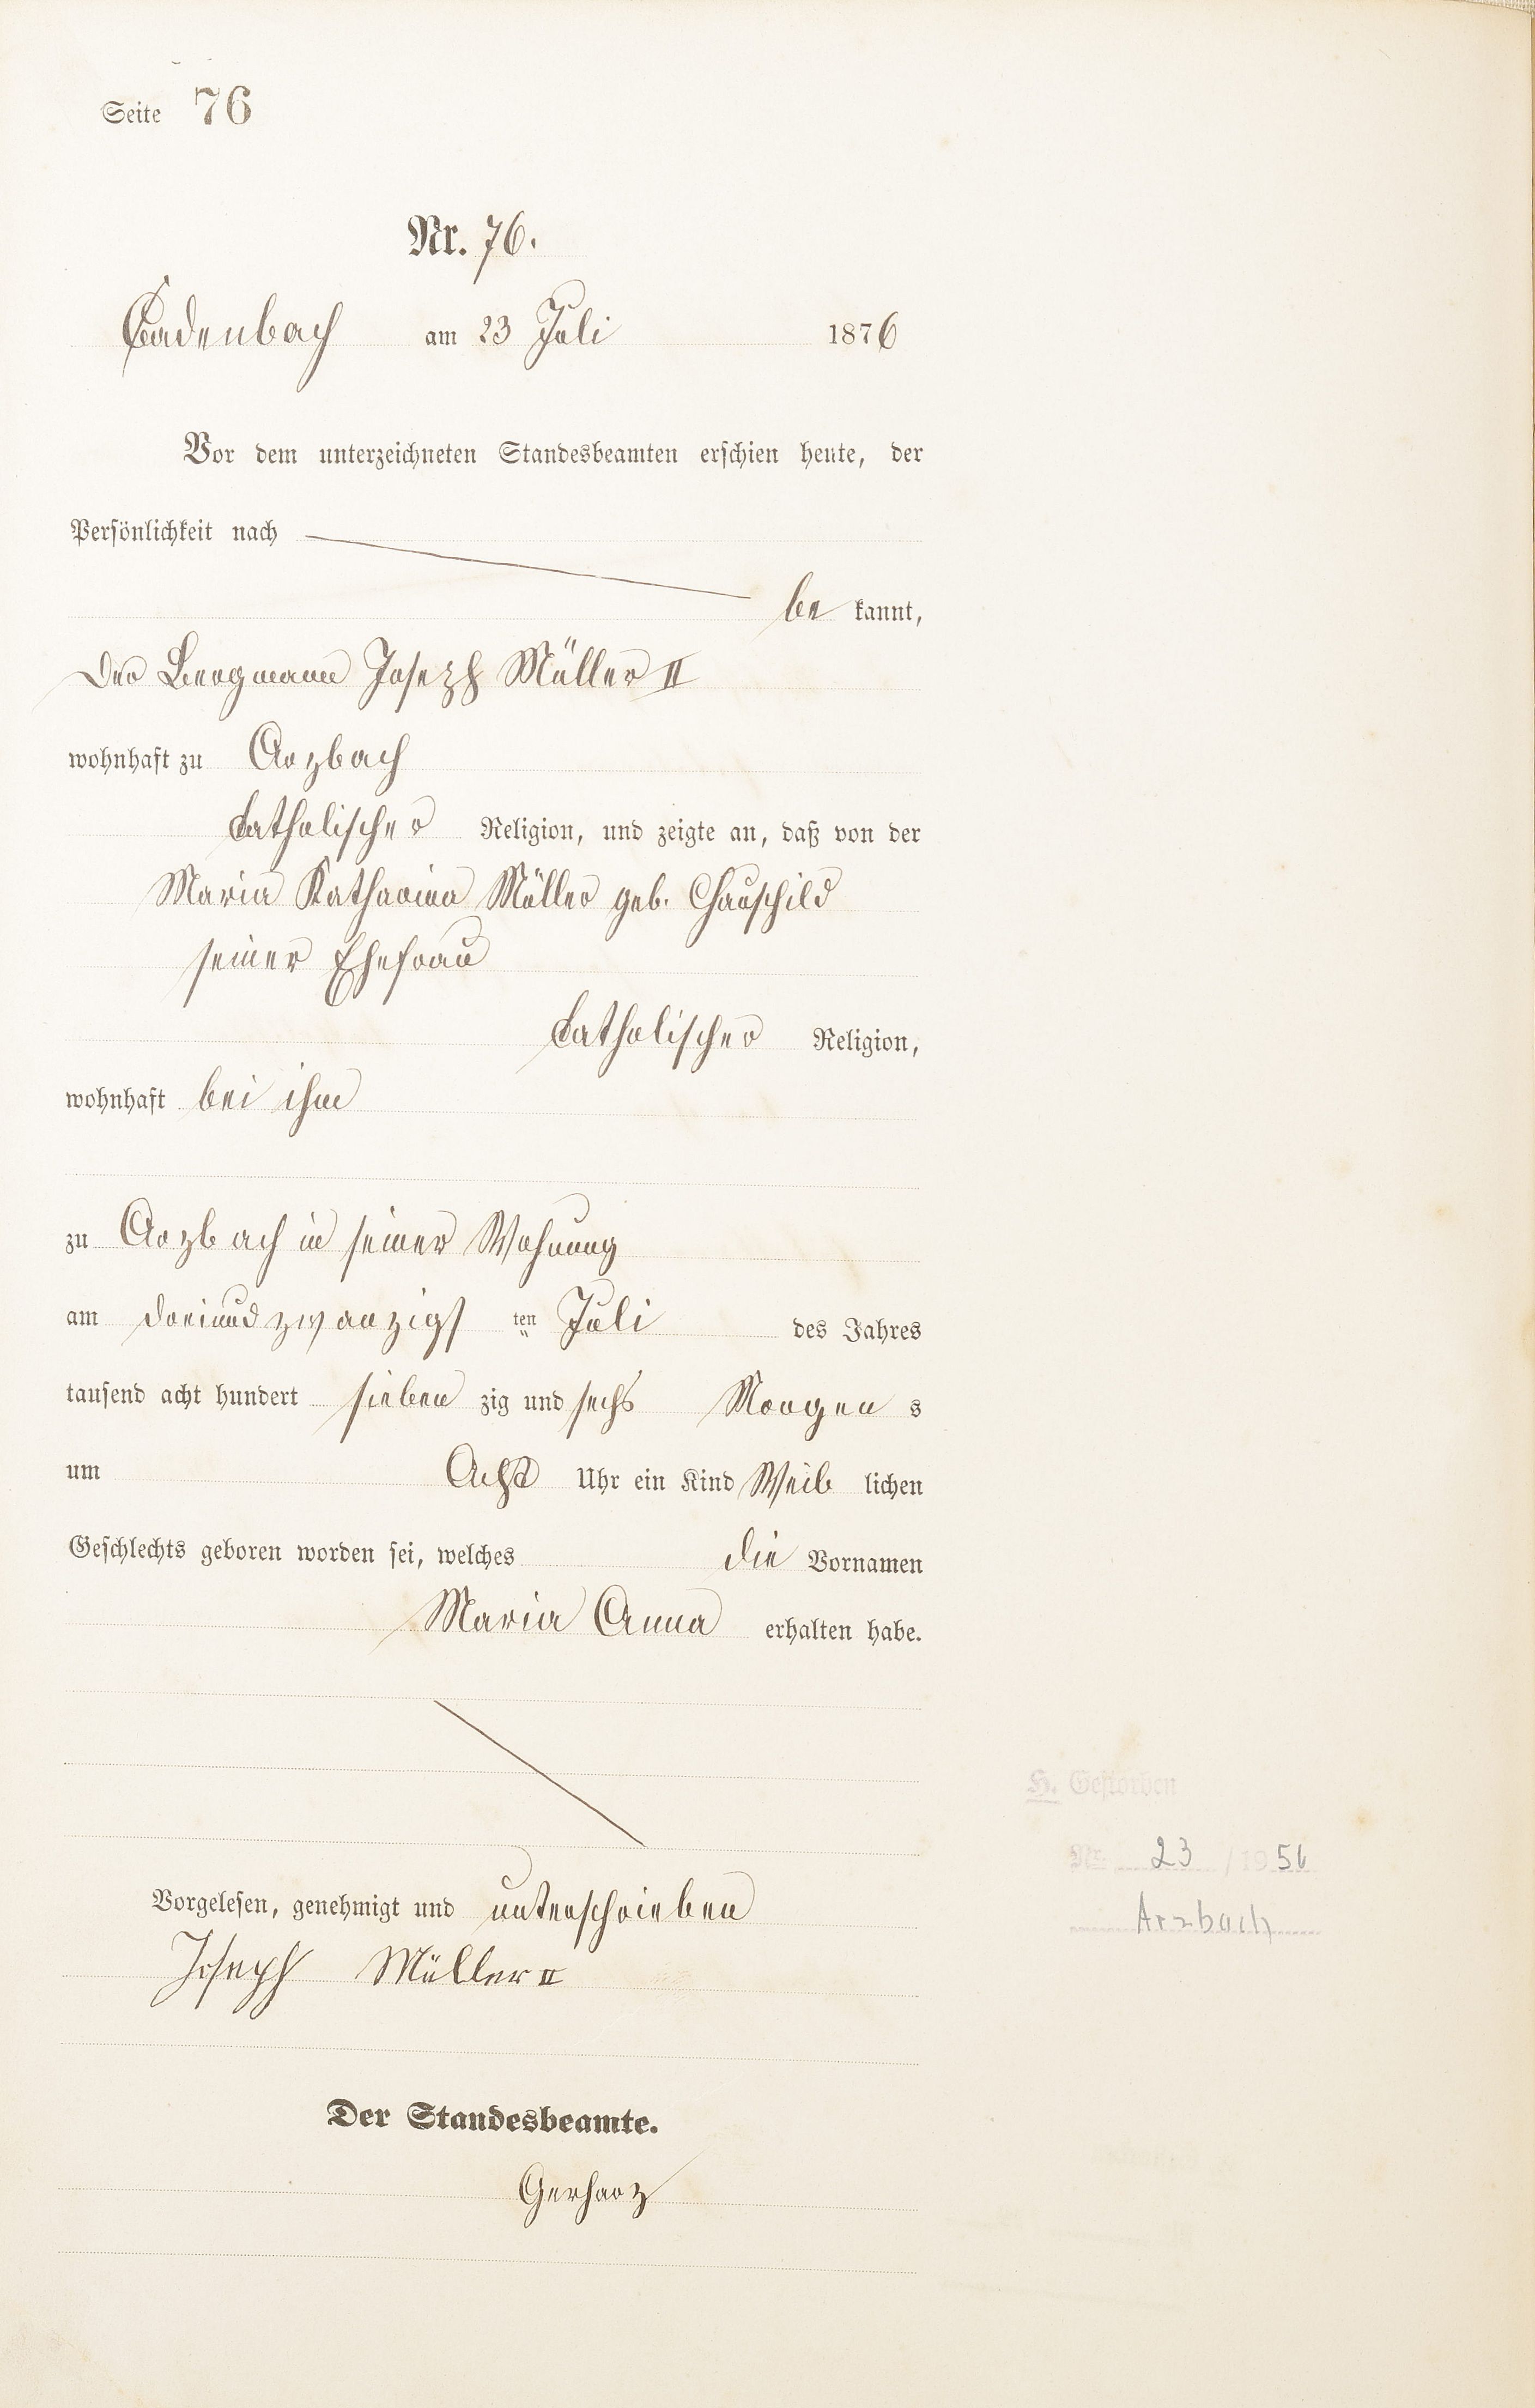 Seite 76
Nr. 76.
Cadenbach am 23 Juli 1876
Vor dem unterzeichneten Standesbeamten erschien heute, der
Persönlichkeit nach
be kannt,
Der Bergmann Joseph Müller II
wohnhaft zu Arzbach
katholischer Religion, und zeigte an, daß von der
Maria Katharina Müller geb.
seiner Ehefrau
katholischer Religion,
wohnhaft bei ihm
zu Arzbach in seiner Wohnung
am dreiundzwanzigs ten Juli des Jahres
tausend acht hundert sieben zig und sechs Morgen s
um Acht Uhr ein Kind Weib lichen
Geschlechts geboren worden sei, welches die Vornamen
Maria Anna erhalten habe.
H. Gestorben
Nr. 23 / 1956
Arzbach
Vorgelesen, genehmigt und unterschrieben
Joseph Müller II
Der Standesbeamte.
Gerharz